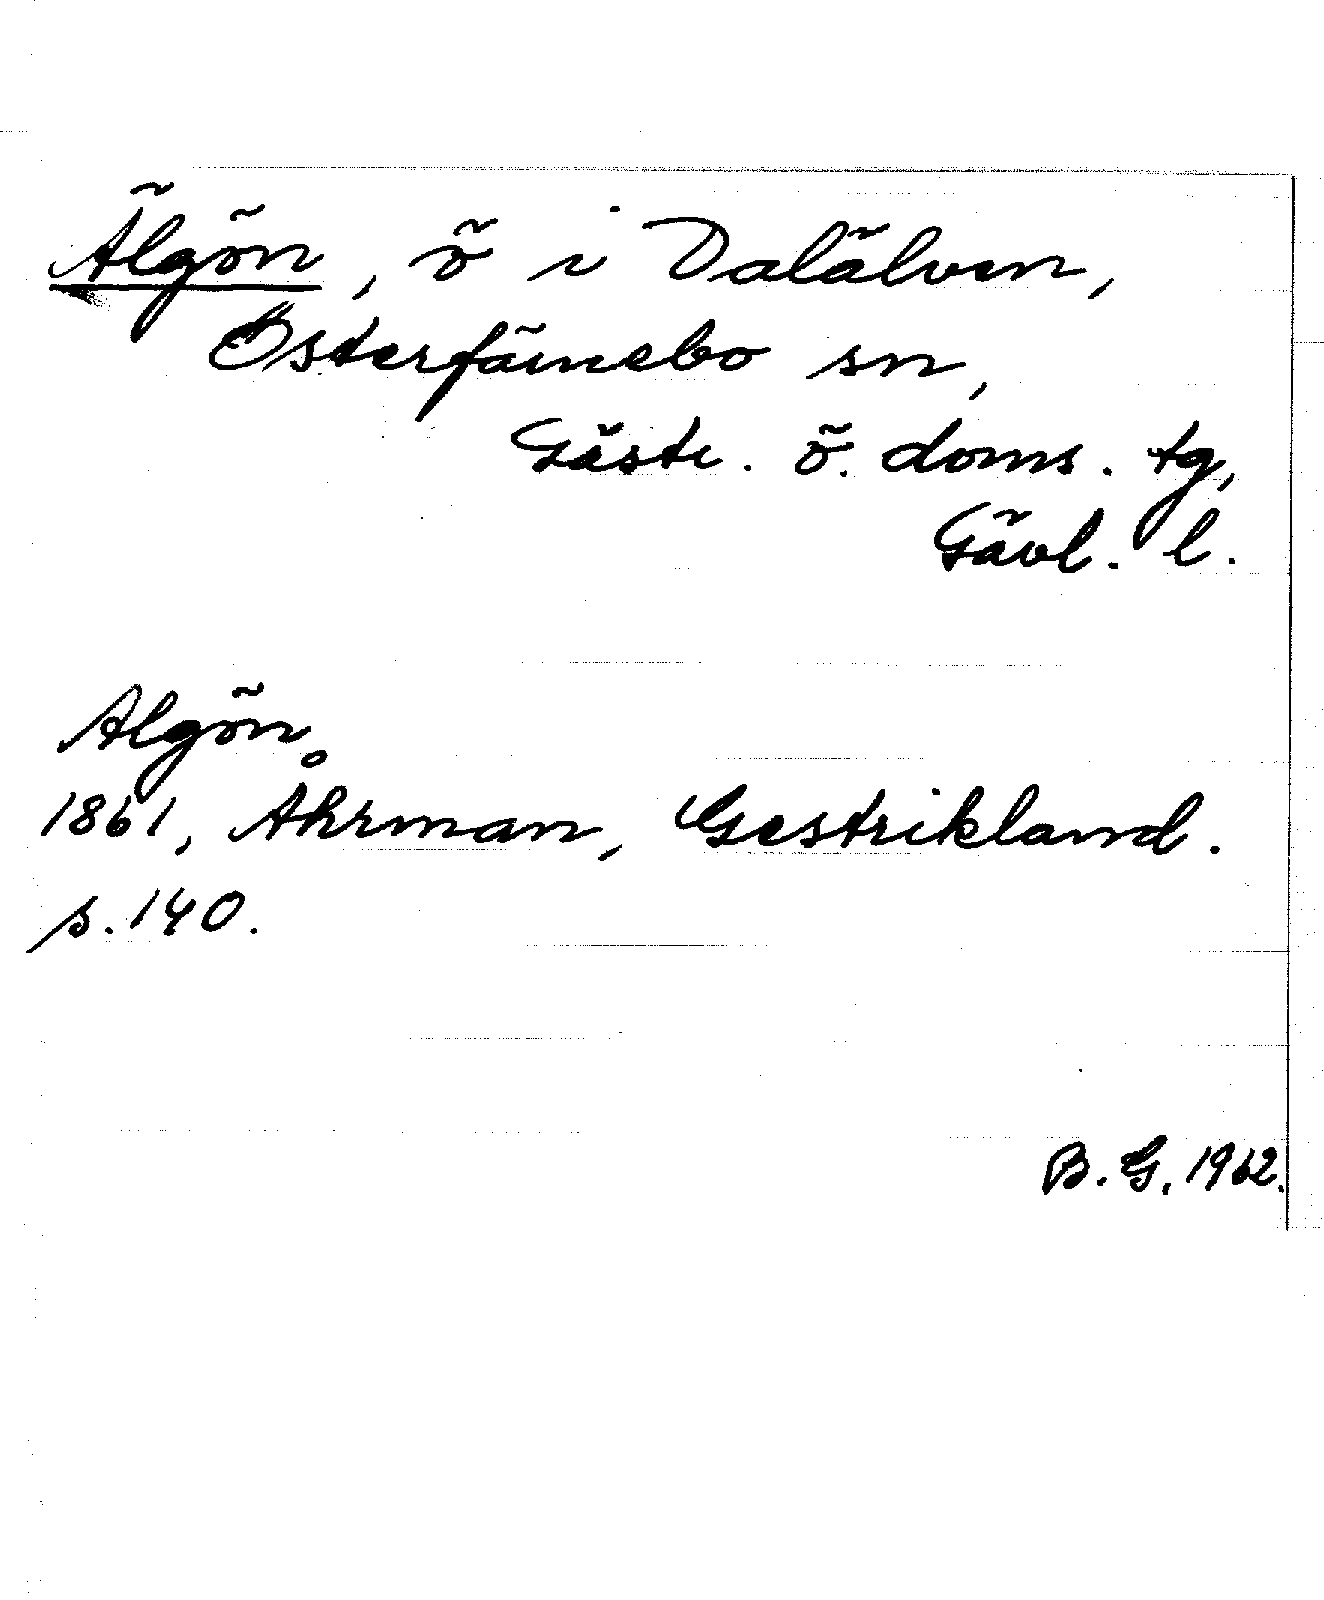 Älgön, ö i Dalälven,
Österfärnebo sn,
Gästr. ö. doms. tg,
Gävl. l.
Algön
1861, Åhrman, Gestrikland.
s. 140.
B. G. 1962.